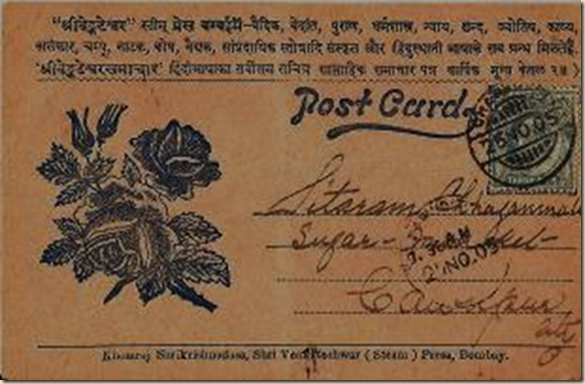 "श्रीवेङ्कटेश्वर" स्टीम् प्रेस बम्बईमें-वैदिक, वेदांत, पुराण, धर्मशास्त्र, न्याय, छन्द, ज्योतिष, काव्य,
अलंकार, चम्पू, नाटक, कोष, वैद्यक, सांप्रदायिक स्तोत्रादि संस्कृत और हिंदुस्थानी भाषाके सब ग्रन्थ मिलतेहैं
'श्रीवेङ्कटेश्वरसमाचार' हिंदीभाषाका सर्वोत्तम सचित्र साप्ताहिक समाचार पत्र वार्षिक मूल्य केवल २रु)
Post Card.
26 NO.05
Sitaram
Sugar-
27 NO.05
Cawnpur
City
Khemraj Shrikrishnadass, Shri Venkateshwar (Steam) Press, Bombay.